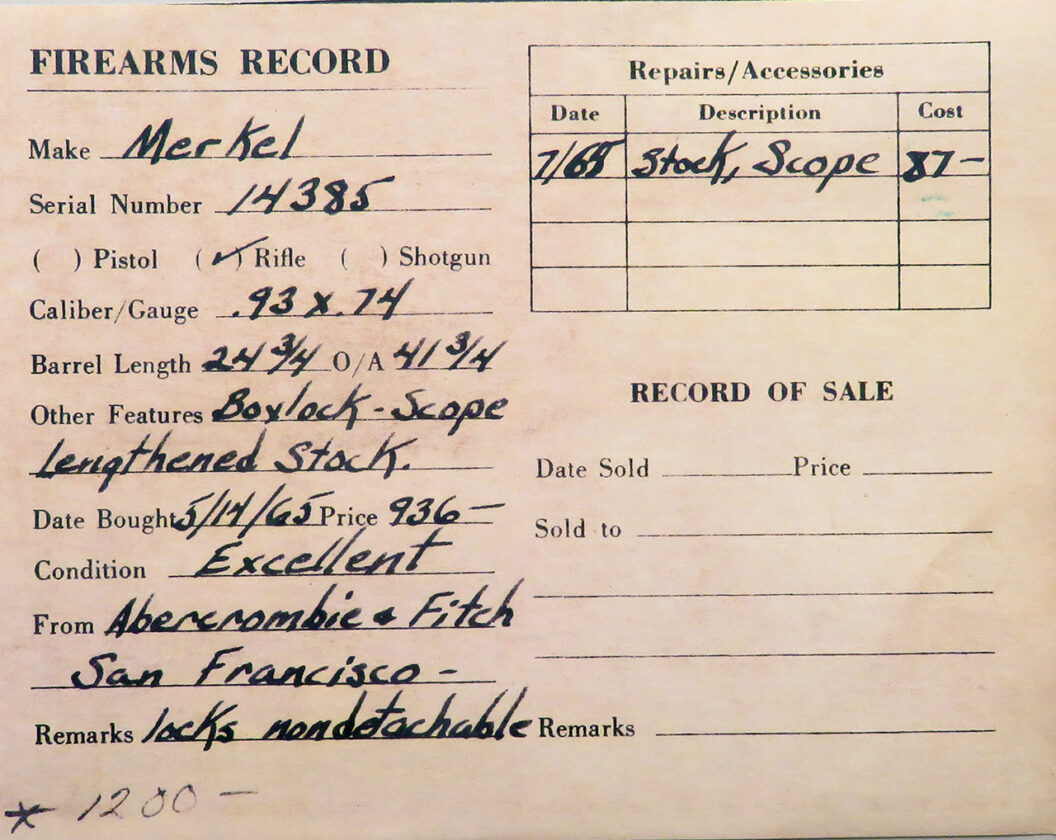 FIREARMS RECORD
Make Merkel
Serial Number 14385
( ) Pistol (✓) Rifle ( ) Shotgun
Caliber/Gauge .93 x .74
Barrel Length 24 3/4 O/A 41 3/4
Other Features Boxlock - Scope
lengthened Stock.
Date Bought 5/14/65 Price 936 —
Condition Excellent
From Abercrombie & Fitch
San Francisco -
Remarks locks nondetachable
* 1200 —
Repairs/Accessories
Date Description Cost
7/65 Stock, Scope 87 —
RECORD OF SALE
Date Sold Price
Sold to
Remarks